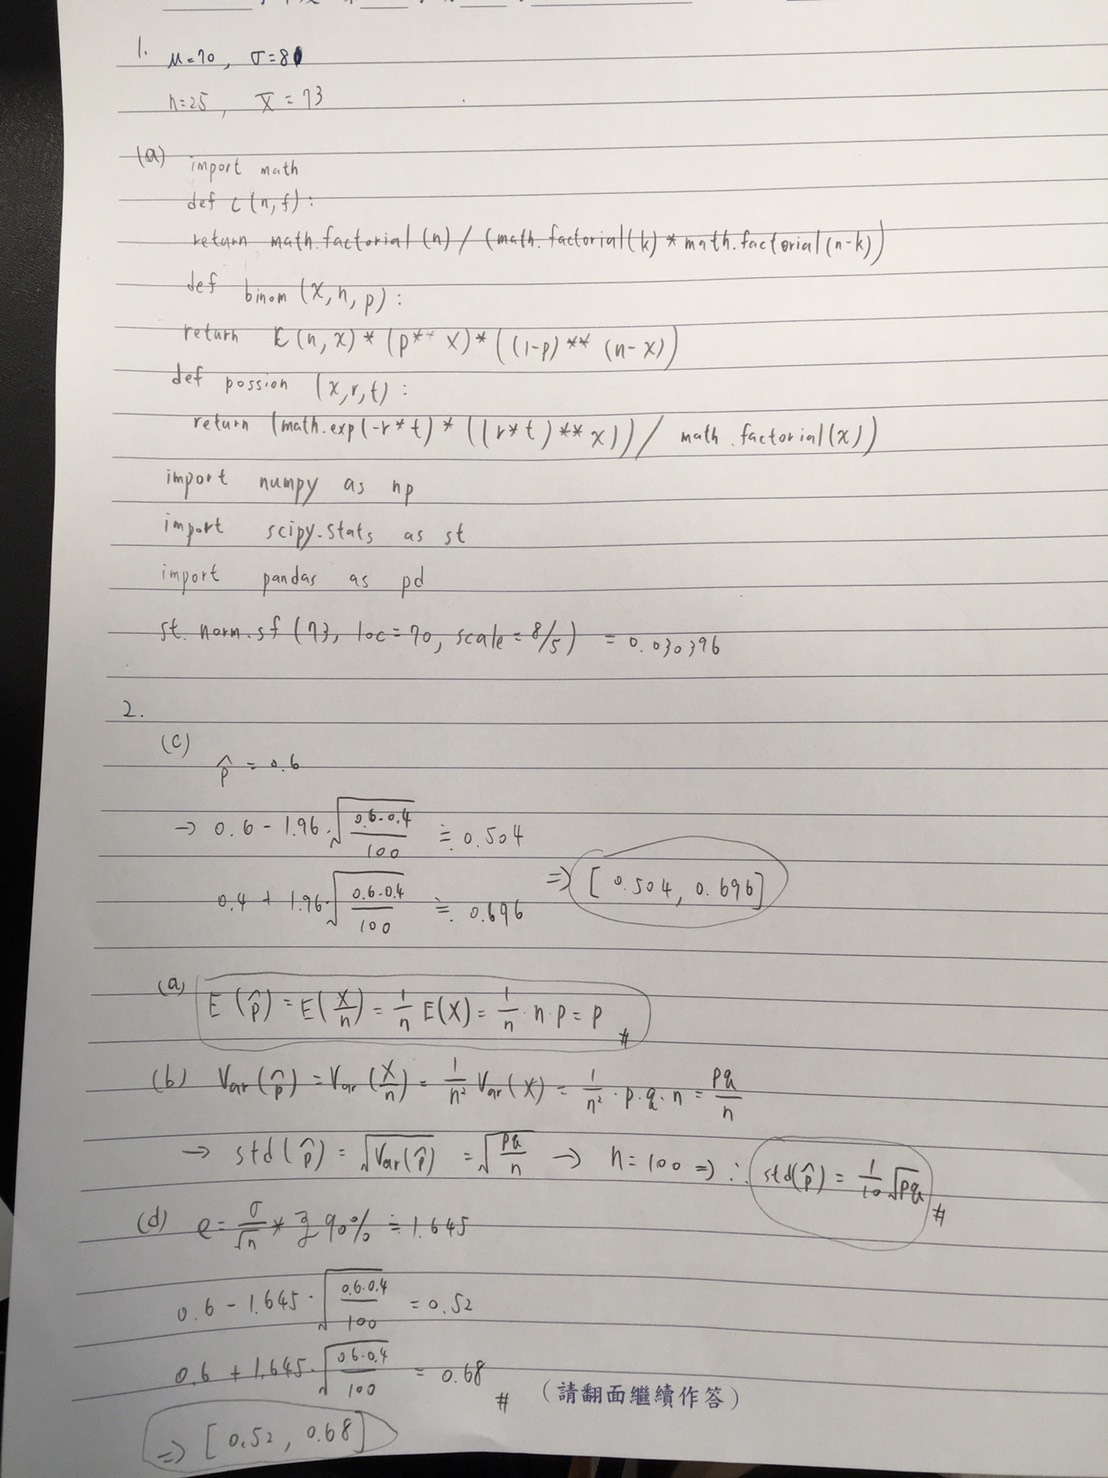 1. μ=70, σ=8
n=25, x̄=73
(a) import math
def C(n,f):
return math.factorial(n)/(math.factorial(k)*math.factorial(n-k))
def binom(x,n,p):
return C(n,x)*(p**x)*((1-p)**(n-x))
def possion (x,r,t):
return (math.exp(-r*t)*((r*t)**x))/ math.factorial(x))
import numpy as np
import scipy.stats as st
import pandas as pd
st.norm.sf(73, loc=70, scale=8/5) = 0.030396
2.
(c)
p̂ = 0.6
→ 0.6 - 1.96·√(0.6·0.4/100) ≒ 0.504
⇒ [0.504, 0.696]
0.4 + 1.96·√(0.6·0.4/100) ≒ 0.696
(a) E(p̂) = E(X/n) = 1/n E(X) = 1/n · n·p = p #
(b) Var(p̂) = Var(X/n) = 1/n² Var(X) = 1/n² · p·q·n = pq/n
→ std(p̂) = √Var(p̂) = √(pq/n) → n=100 ⇒ ∴ std(p̂) = 1/10 √pq #
(d) e = σ/√n * z 90% ≒ 1.645
0.6 - 1.645·√(0.6·0.4/100) = 0.52
0.6 + 1.645·√(0.6·0.4/100) = 0.68 #
(請翻面繼續作答)
⇒ [0.52, 0.68]